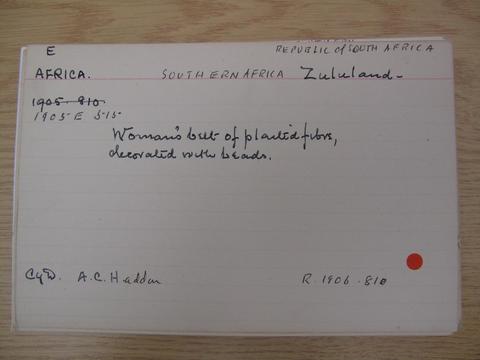 E
REPUBLIC of SOUTH AFRICA
AFRICA. SOUTHERN AFRICA Zululand-
1905-810
1905 E 515
Woman's belt of plaited fibre,
decorated with beads.
A.C. Haddon R. 1906.810